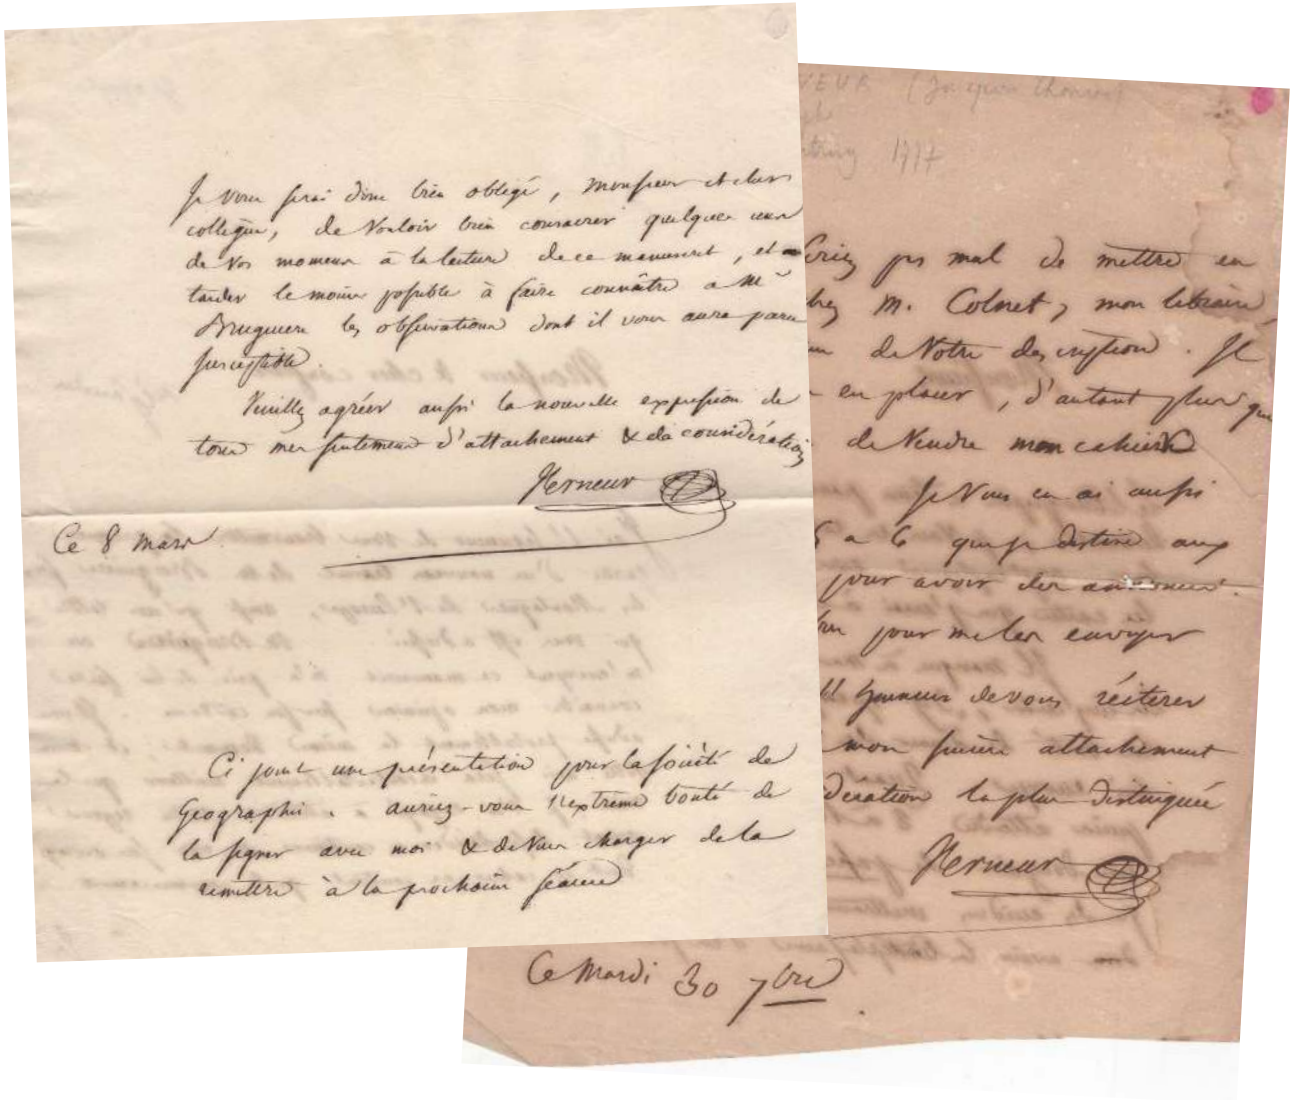 Je vous serai donc bien obligé, Monsieur et cher
collègue, de vouloir bien consacrer quelques uns
de vos momens à la lecture de ce manuscrit, et
tarder le moins possible à faire connaître a Mr
Bruguiere les observations dont il vous aura paru
susceptible.
Veuillez agréer aussi la nouvelle expression de
tous mes sentimens d'attachement & de considération
Verneur
Ce 8 mars
Ci joint une présentation pour la Société de
Géographie. auriez-vous l'extrême bonté de
la signer avec moi & de vous charger de la
remettre à la prochaine séance
VEUR (Jacques Thomas)
1777
pas mal de mettre en
M. Colnet, mon libraire,
de Votre description. Il
en placer, d'autant plus que
de vendre mon cahier
Je vous en ai aussi
5 a 6 que je destine aux
pour avoir des annonces.
pour me les envoyer
honneur de vous réiterer
mon sincère attachement
la plus distinguée
Verneur
Ce Mardi 30 7bre